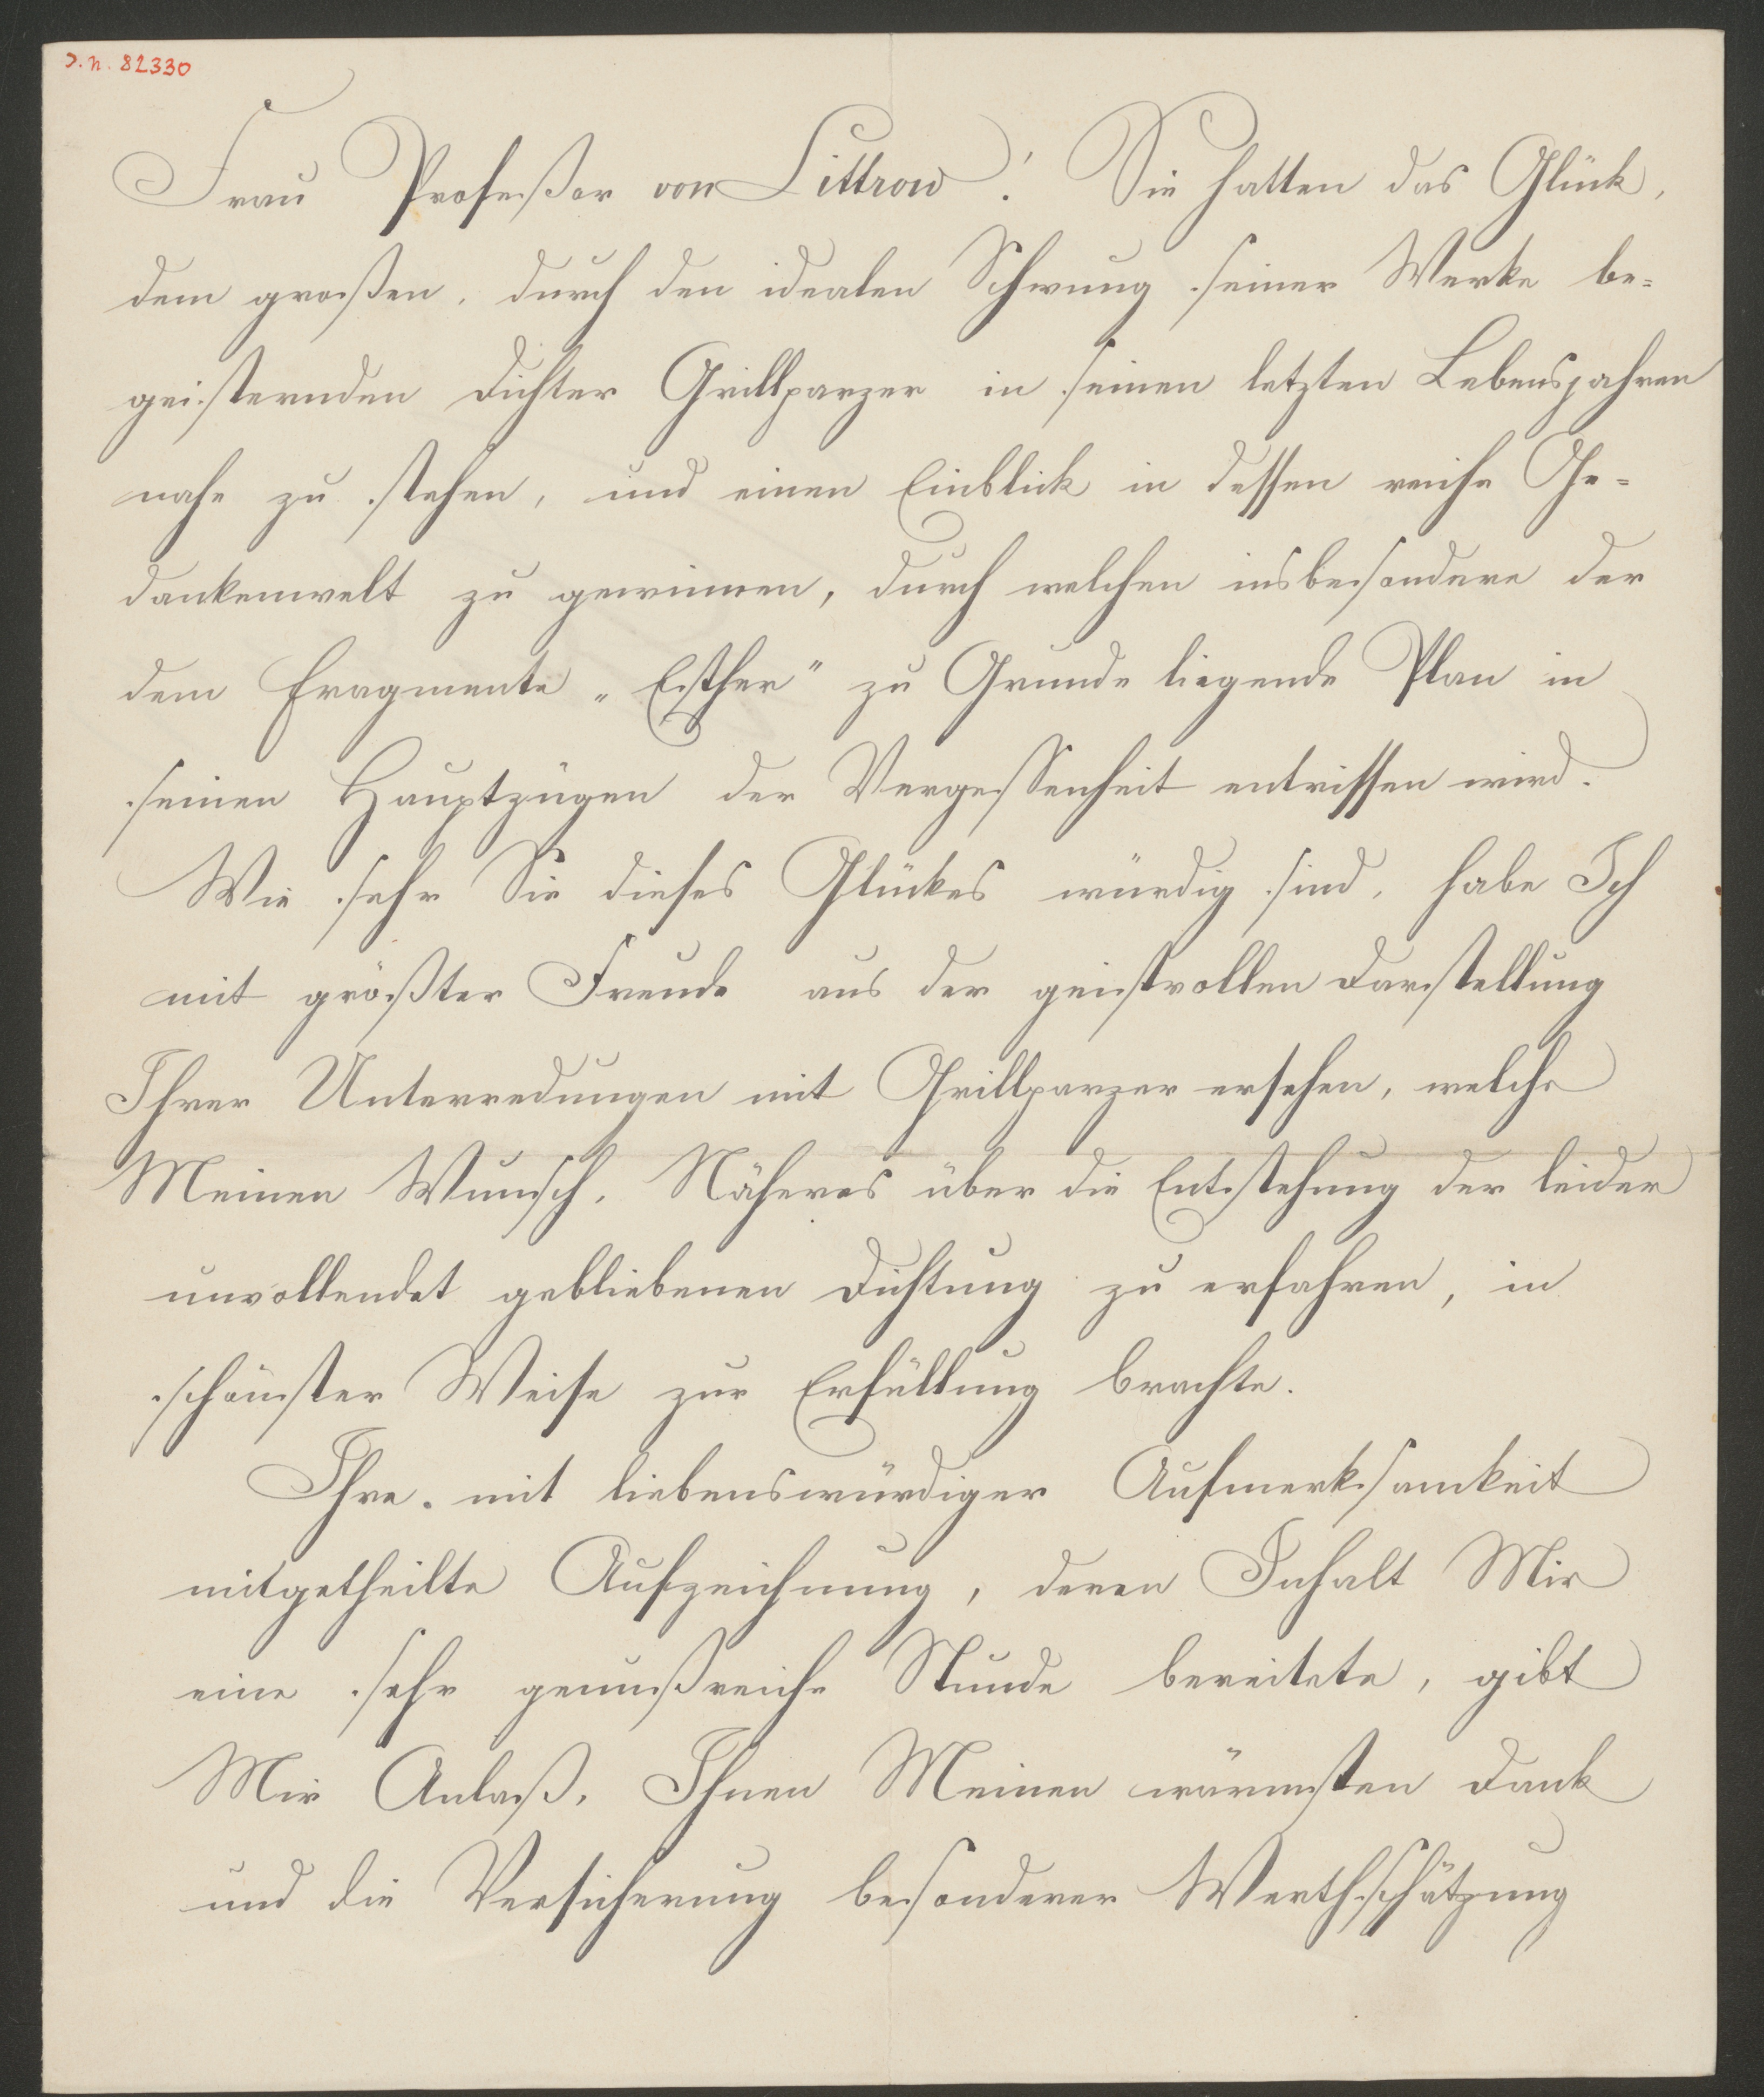 J. N. 82330
Frau Profeßor von Littrow! Sie hatten das Glück,
dem großen, durch den idealen Schwung seiner Werke be=
geisternden Dichter Grillparzer in seinen letzten Lebensjahren
nahe zu stehen, und einen Einblick in dessen reiche Ge=
dankenwelt zu gewinnen, durch welchen insbesondere der
dem Fragmente „Esther" zu Grunde liegende Plan in
seinen Hauptzügen der Vergessenheit entrissen wird.
Wie sehr Sie dieses Glückes würdig sind, habe Ich
mit größter Freude aus der geistvollen Darstellung
Ihrer Unterredungen mit Grillparzer ersehen, welche
Meinen Wunsch, Näheres über die Entstehung der leider
unvollendet gebliebenen Dichtung zu erfahren, in
schönster Weise zur Erfüllung brachte.
Ihre, mit liebenswürdiger Aufmerksamkeit
mitgetheilte Aufzeichnung, deren Inhalt Mir
eine sehr genußreiche Stunde bereitete, gibt
Mir Anlaß, Ihnen Meinen wärmsten Dank
und die Versicherung besonderer Werthschätzung